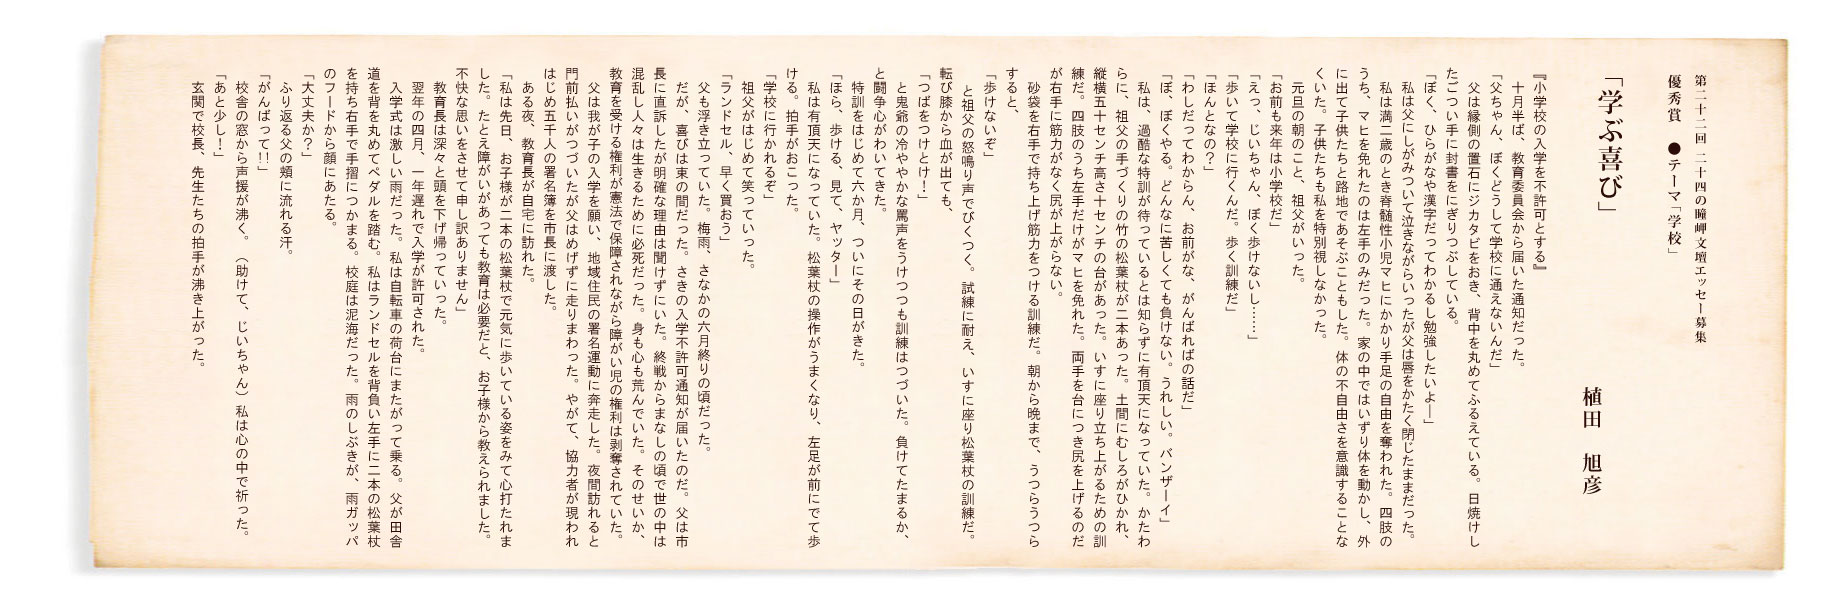 第二十二回 二十四の瞳岬文壇エッセー募集
優秀賞 ●テーマ「学校」
「学ぶ喜び」
植田 旭彦
『小学校の入学を不許可とする』
十月半ば、教育委員会から届いた通知だった。
「父ちゃん、ぼくどうして学校に通えないんだ」
父は縁側の置石にジカタビをおき、背中を丸めてふるえている。日焼けし
たごつい手に封書をにぎりつぶしている。
「ぼく、ひらがなや漢字だってわかるし勉強したいよ―」
私は父にしがみついて泣きながらいったが父は唇をかたく閉じたままだった。
私は満二歳のとき脊髄性小児マヒにかかり手足の自由を奪われた。四肢の
うち、マヒを免れたのは左手のみだった。家の中ではいずり体を動かし、外
に出て子供たちと路地であそぶこともした。体の不自由さを意識することな
くいた。子供たちも私を特別視しなかった。
元旦の朝のこと、祖父がいった。
「お前も来年は小学校だ」
「えっ、じいちゃん、ぼく歩けないし……」
「歩いて学校に行くんだ。歩く訓練だ」
「ほんとなの？」
「わしだってわからん、お前がな、がんばればの話だ」
「ぼ、ぼくやる。どんなに苦しくても負けない。うれしい。バンザーイ」
私は、過酷な特訓が待っているとは知らずに有頂天になっていた。かたわ
らに、祖父の手づくりの竹の松葉杖が二本あった。土間にむしろがひかれ、
縦横五十センチ高さ十センチの台があった。いすに座り立ち上がるための訓
練だ。四肢のうち左手だけがマヒを免れた。両手を台につき尻を上げるのだ
が右手に筋力がなく尻が上がらない。
砂袋を右手で持ち上げ筋力をつける訓練だ。朝から晩まで、うつらうつら
すると、
「歩けないぞ」
と祖父の怒鳴り声でびくつく。試練に耐え、いすに座り松葉杖の訓練だ。
転び膝から血が出ても、
「つばをつけとけ！」
と鬼爺の冷ややかな罵声をうけつつも訓練はつづいた。負けてたまるか、
と闘争心がわいてきた。
特訓をはじめて六か月、ついにその日がきた。
「ほら、歩ける、見て、ヤッター」
私は有頂天になっていた。松葉杖の操作がうまくなり、左足が前にでて歩
ける。拍手がおこった。
「学校に行かれるぞ」
祖父がはじめて笑っていった。
「ランドセル、早く買おう」
父も浮き立っていた。梅雨、さなかの六月終りの頃だった。
だが、喜びは束の間だった。さきの入学不許可通知が届いたのだ。父は市
長に直訴したが明確な理由は聞けずにいた。終戦からまなしの頃で世の中は
混乱し人々は生きるために必死だった。身も心も荒んでいた。そのせいか、
教育を受ける権利が憲法で保障されながら障がい児の権利は剥奪されていた。
父は我が子の入学を願い、地域住民の署名運動に奔走した。夜間訪れると
門前払いがつづいたが父はめげずに走りまわった。やがて、協力者が現われ
はじめ五千人の署名簿を市長に渡した。
ある夜、教育長が自宅に訪れた。
「私は先日、お子様が二本の松葉杖で元気に歩いている姿をみて心打たれま
した。たとえ障がいがあっても教育は必要だと、お子様から教えられました。
不快な思いをさせて申し訳ありません」
教育長は深々と頭を下げ帰っていった。
翌年の四月、一年遅れで入学が許可された。
入学式は激しい雨だった。私は自転車の荷台にまたがって乗る。父が田舎
道を背を丸めてペダルを踏む。私はランドセルを背負い左手に二本の松葉杖
を持ち右手で手摺につかまる。校庭は泥海だった。雨のしぶきが、雨ガッパ
のフードから顔にあたる。
「大丈夫か？」
ふり返る父の頬に流れる汗。
「がんばって!!」
校舎の窓から声援が沸く。（助けて、じいちゃん）私は心の中で祈った。
「あと少し！」
玄関で校長、先生たちの拍手が沸き上がった。